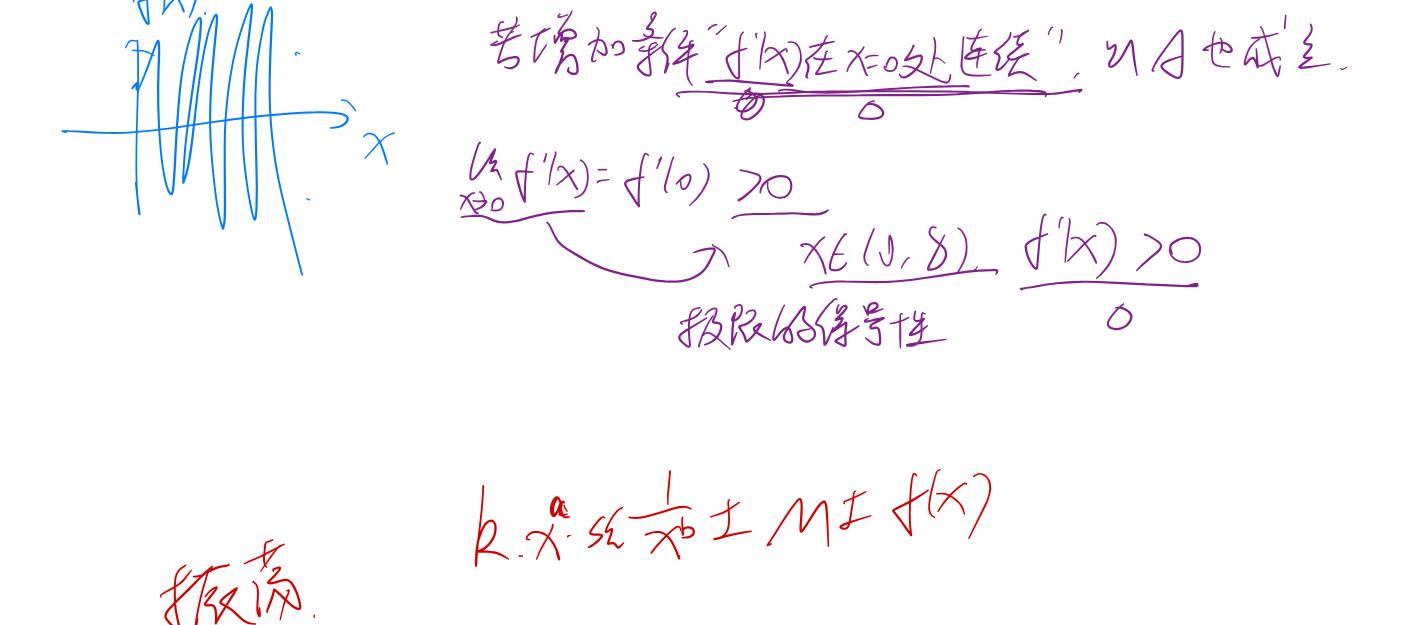 f(x).
x
若增加条件“f'(x)在x=0处连续”,则A也成立.
0
lim f'(x)=f'(0) >0
x→0
x∈(0,δ), f'(x)>0
极限的保号性
0
k.x^a.sin 1/x^b ± M ± f(x)
振荡.